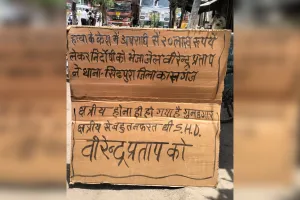 हत्या के केश में अपराधी से २० लाख रूपये
लेकर निर्दोषी को भेजा जेल वीरेन्द्र प्रताप
ने थाना-सिढ़पुरा जिला कासगंज
क्षत्रीय होना ही हो गया है गुनहगार
क्षत्रीय से बहुत नफरत थी S.H.O.
वीरेन्द्र प्रताप को